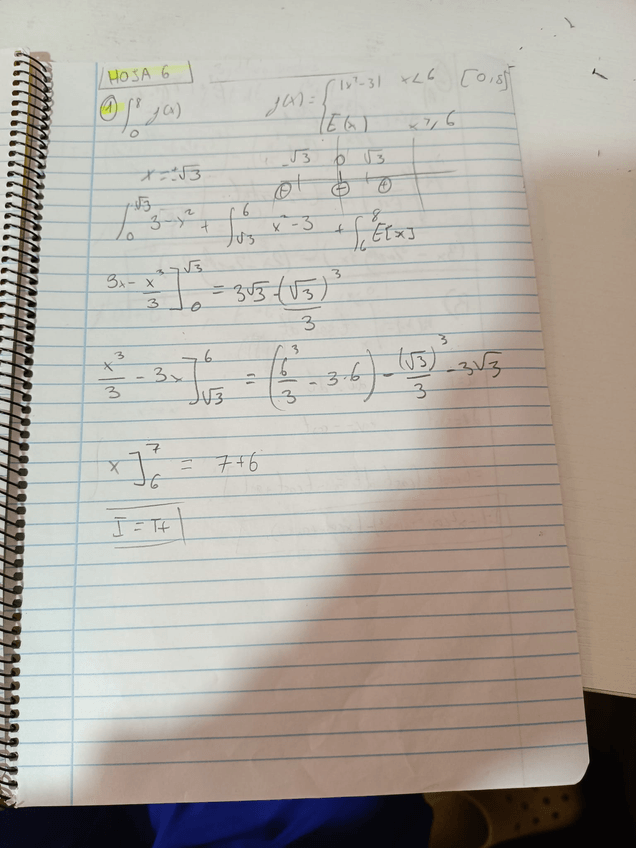 HOJA 6
① ∫₀⁸ f(x)    f(x) = { |x²-3|  x<6   [0,8]
E(x)  x≥6
x = ±√3    -√3  0  √3
⊕ ⊕ ⊕
∫₀^√3 3-x² + ∫_√3^6 x²-3 + ∫₆⁸ E[x]
3x - x³/3 ]₀^√3 = 3√3 - (√3)³/3
x³/3 - 3x ]_√3^6 = (6³/3 - 3·6) - (√3)³/3 - 3√3
x ]₆⁷ = 7+6
I = I+